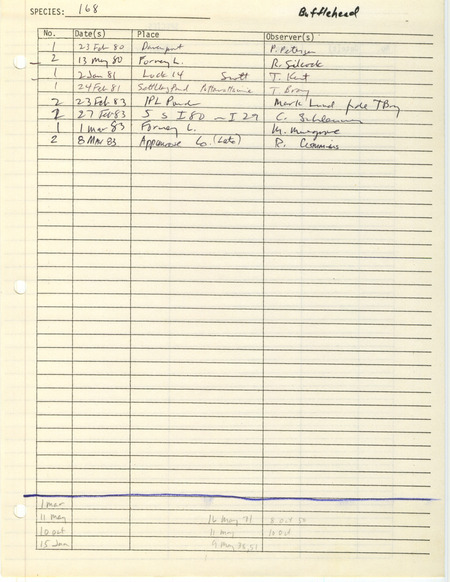 SPECIES: 168 Bufflehead
No. Date(s) Place Observer(s)
1 23 Feb 80 Davenport P. Petersen
2 13 May 80 Forney L. R. Silcock
1 2 Jan 81 Lock 14 Scott T. Kent
1 24 Feb 81 Settling Pond Pottawattamie T Bray
2 23 Feb 83 IPL Ponds Mark Lund fide T Bray
2 27 Feb 83 S I 80 - I 29 C.
1 1 Mar 83 Forney L. M.
2 8 Mar 83 Appanoose Co. (Lets) R. Cummins
1 mar
11 may 16 May 71 8 Oct 50
10 oct 11 may 10 Oct
15 Jan 9 May